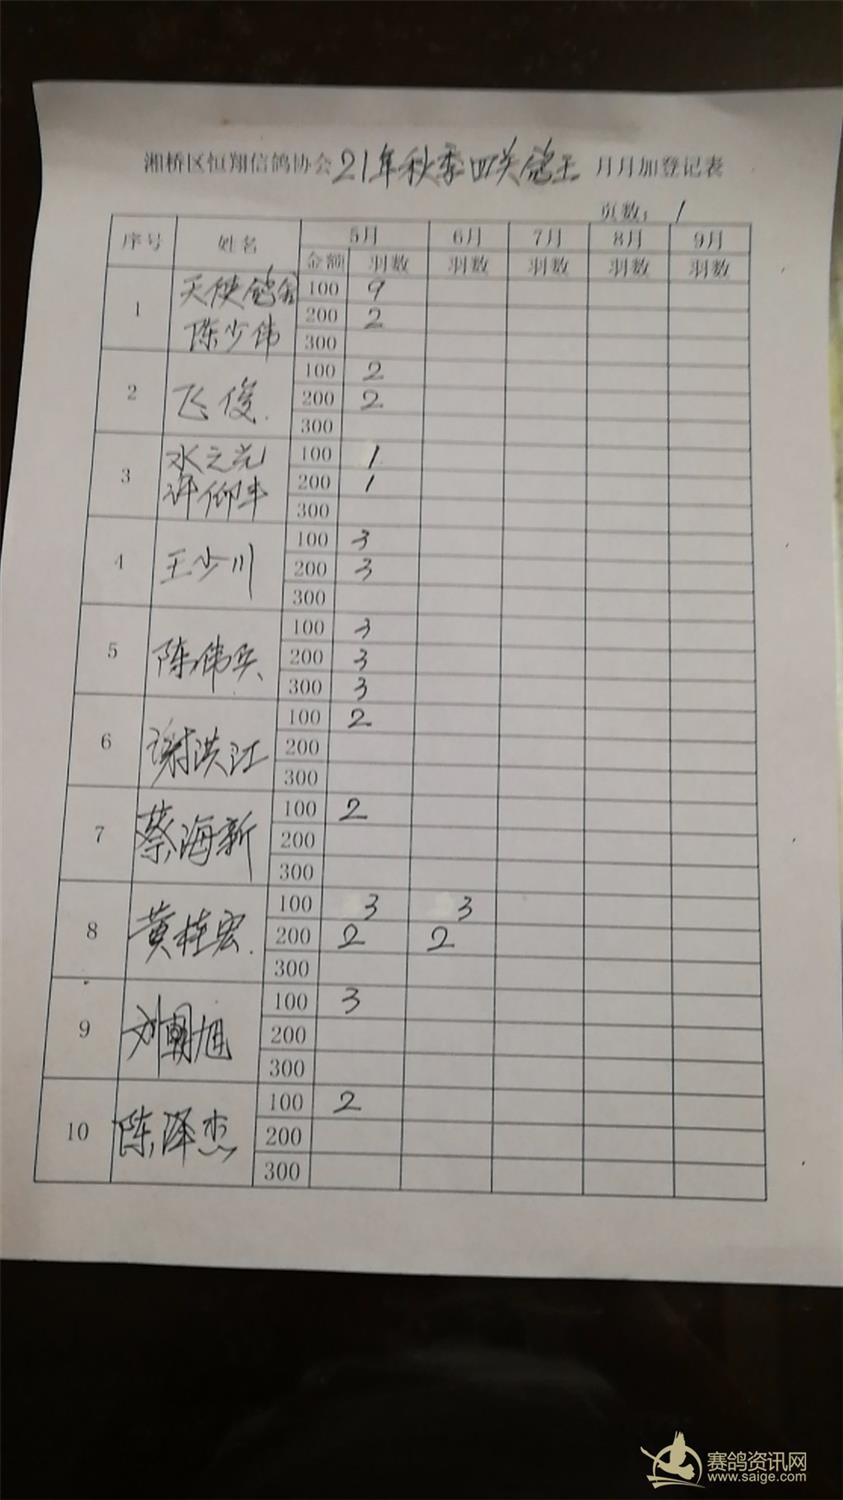 湘桥区恒翔信鸽协会 21年秋季四关鸽王 月月加登记表
页数: 1
序号 姓名 5月 6月 7月 8月 9月
金额 羽数 羽数 羽数 羽数 羽数
1 天使鸽舍 100 9
陈少伟 200 2
300
100 2
2 飞俊. 200 2
300
3 水之 100 1
许仰丰 200 1
300
100 3
4 王少川 200 3
300
100 3
5 陈伟兵 200 3
300 3
100 2
6 谢洪江 200
300
100 2
7 蔡海新 200
300
100 3 3
8 黄桂宏. 200 2 2
300
100 3
9 刘朝旭 200
300
100 2
10 陈泽杰 200
300
赛鸽资讯网
www.saige.com